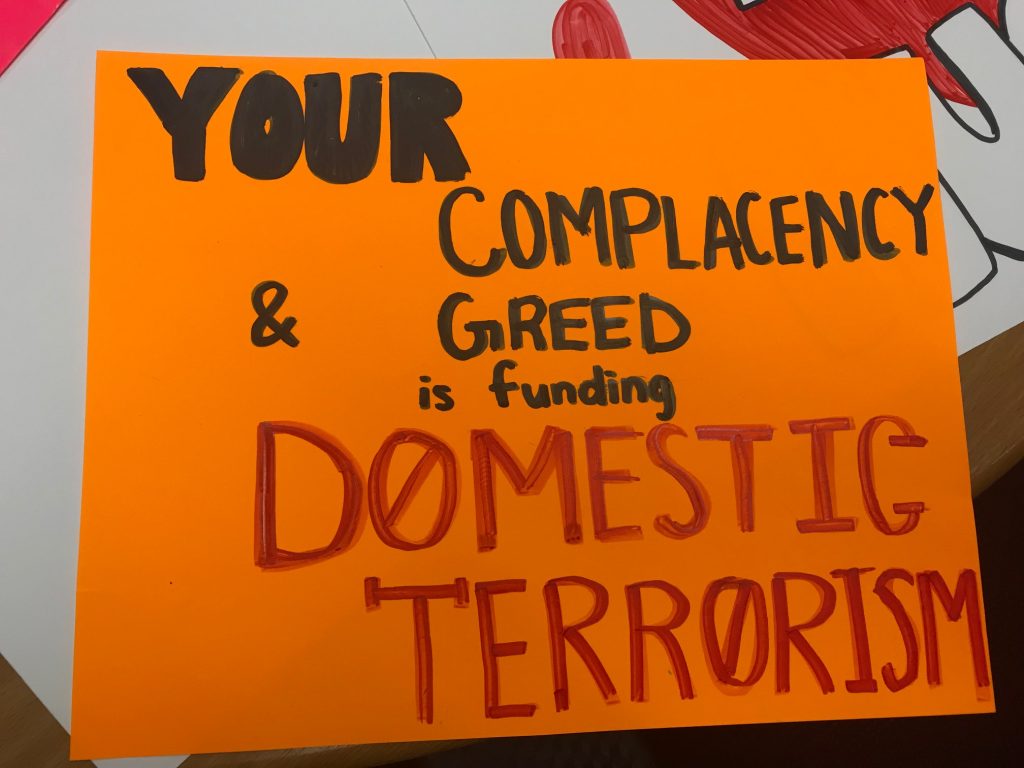 YOUR
COMPLACENCY
& GREED
is funding
DØMESTIC
TERRØRISM